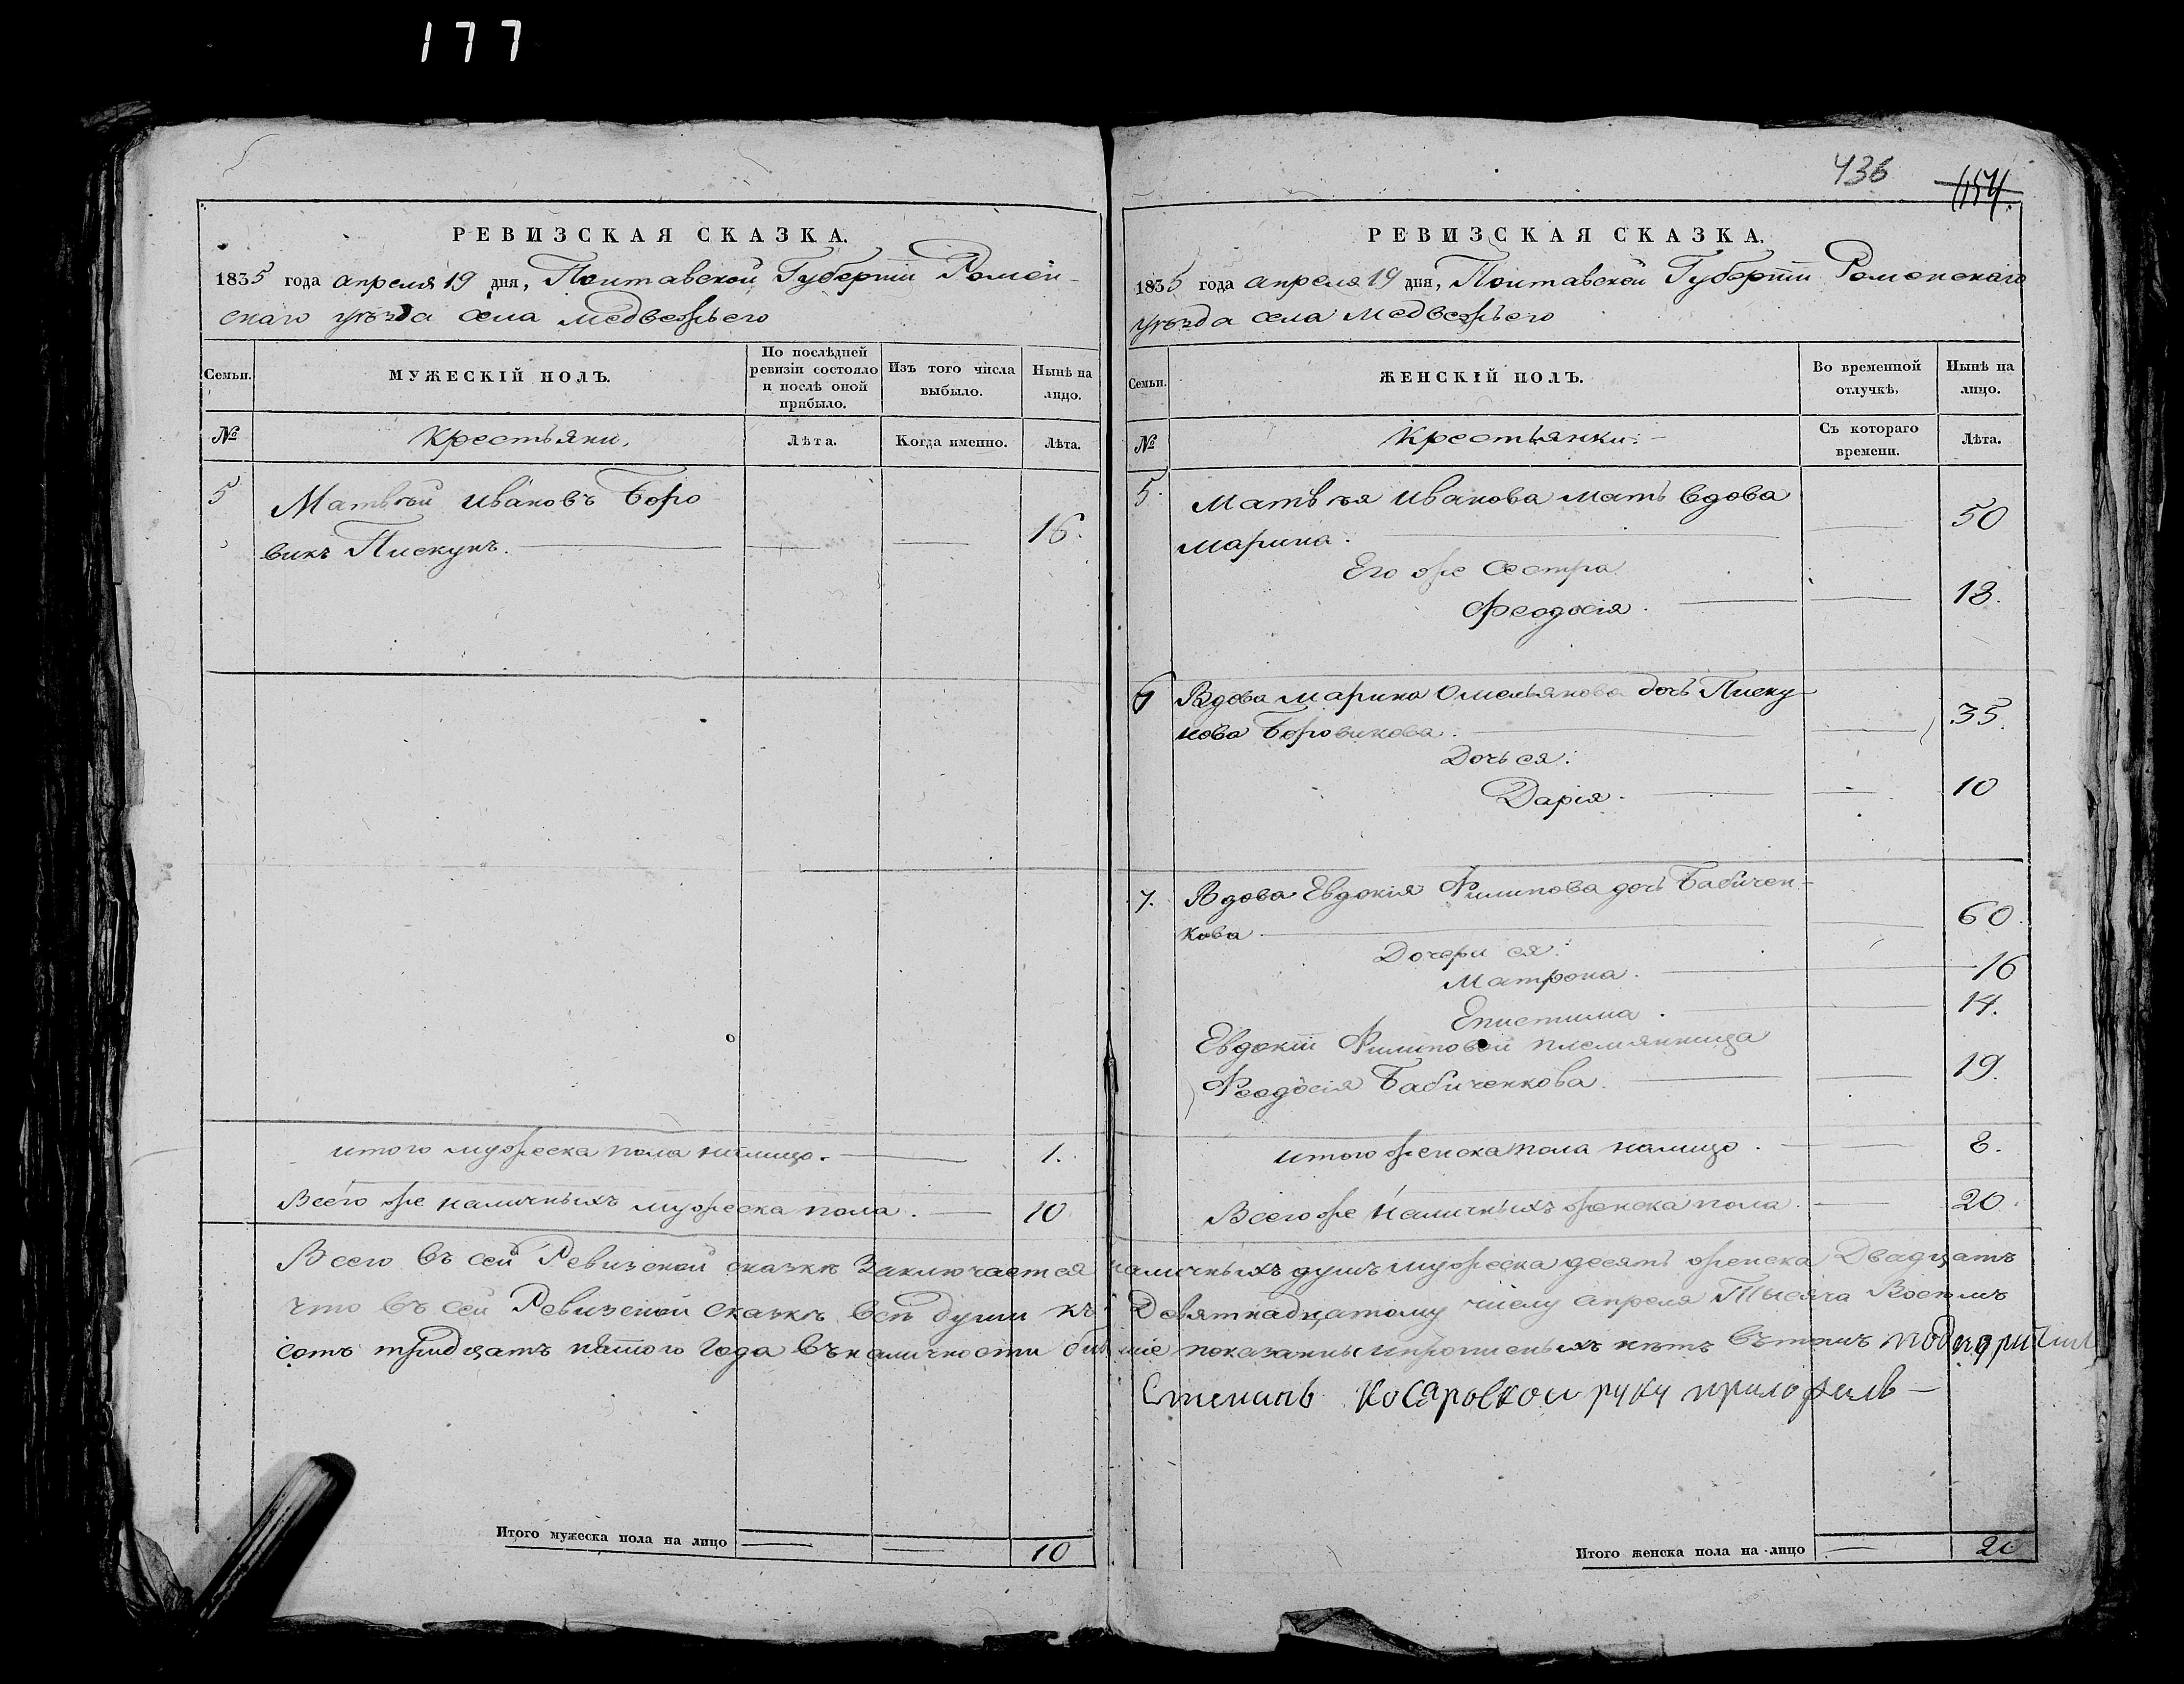 177
РЕВИЗСКАЯ СКАЗКА.
1835 года апреля 19 дня, Полтавской Губернiи Ромен-
скаго уѣзда села Медвежьего
Семьи.
МУЖЕСКIЙ ПОЛЪ.
По послѣдней ревизiи состояло и послѣ оной прибыло.
Изъ того числа выбыло.
Нынѣ на лицо.
№
Крестьяни.
Лѣта.
Когда именно.
Лѣта.
5
Матвѣй Ивановъ Боро
викъ Пискунъ.
16.
итого мужеска пола налицо. 1.
Всего же наличныхъ мужеска пола. 10
436
РЕВИЗСКАЯ СКАЗКА.
1835 года апреля 19 дня, Полтавской Губернiи Роменскаго
уѣзда села Медвежьего
Семьи.
ЖЕНСКIЙ ПОЛЪ.
Во временной отлучкѣ,
Нынѣ на лицо.
№
Крестьянки:
Съ котораго времени.
Лѣта.
5.
Матвѣя Иванова мать вдова
Марина. 50
Его же Сестра
Феодосiя. 18.
6
Вдова Марина Омельянова дочь Писку-
нова Боровикова. 35.
Дочь ея:
Дарiя. 10
7.
Вдова Евдокiя Филипова дочь Бабичен-
кова 60.
Дочери ея:
Матрона. 16
Епистима. 14.
Евдокiи Филиповой племянница
Феодосiя Бабиченкова. 19.
итого женска пола налицо. 8.
Всего же Наличныхъ женска пола. 20.
Всего въ сей Ревизской сказкѣ Заключается наличныхъ душъ мужеска десять женска Двадцать
что въ сей Ревизской сказкѣ всѣ души къ Девятнадцатому числу апреля Тысяча Восемъ
сотъ тридцать пятого года въ наличности бывшiе показаны и прописныхъ нѣтъ въ томъ
Косяровской руку приложилъ
Итого мужеска пола на лицо 10
Итого женска пола на лицо 20